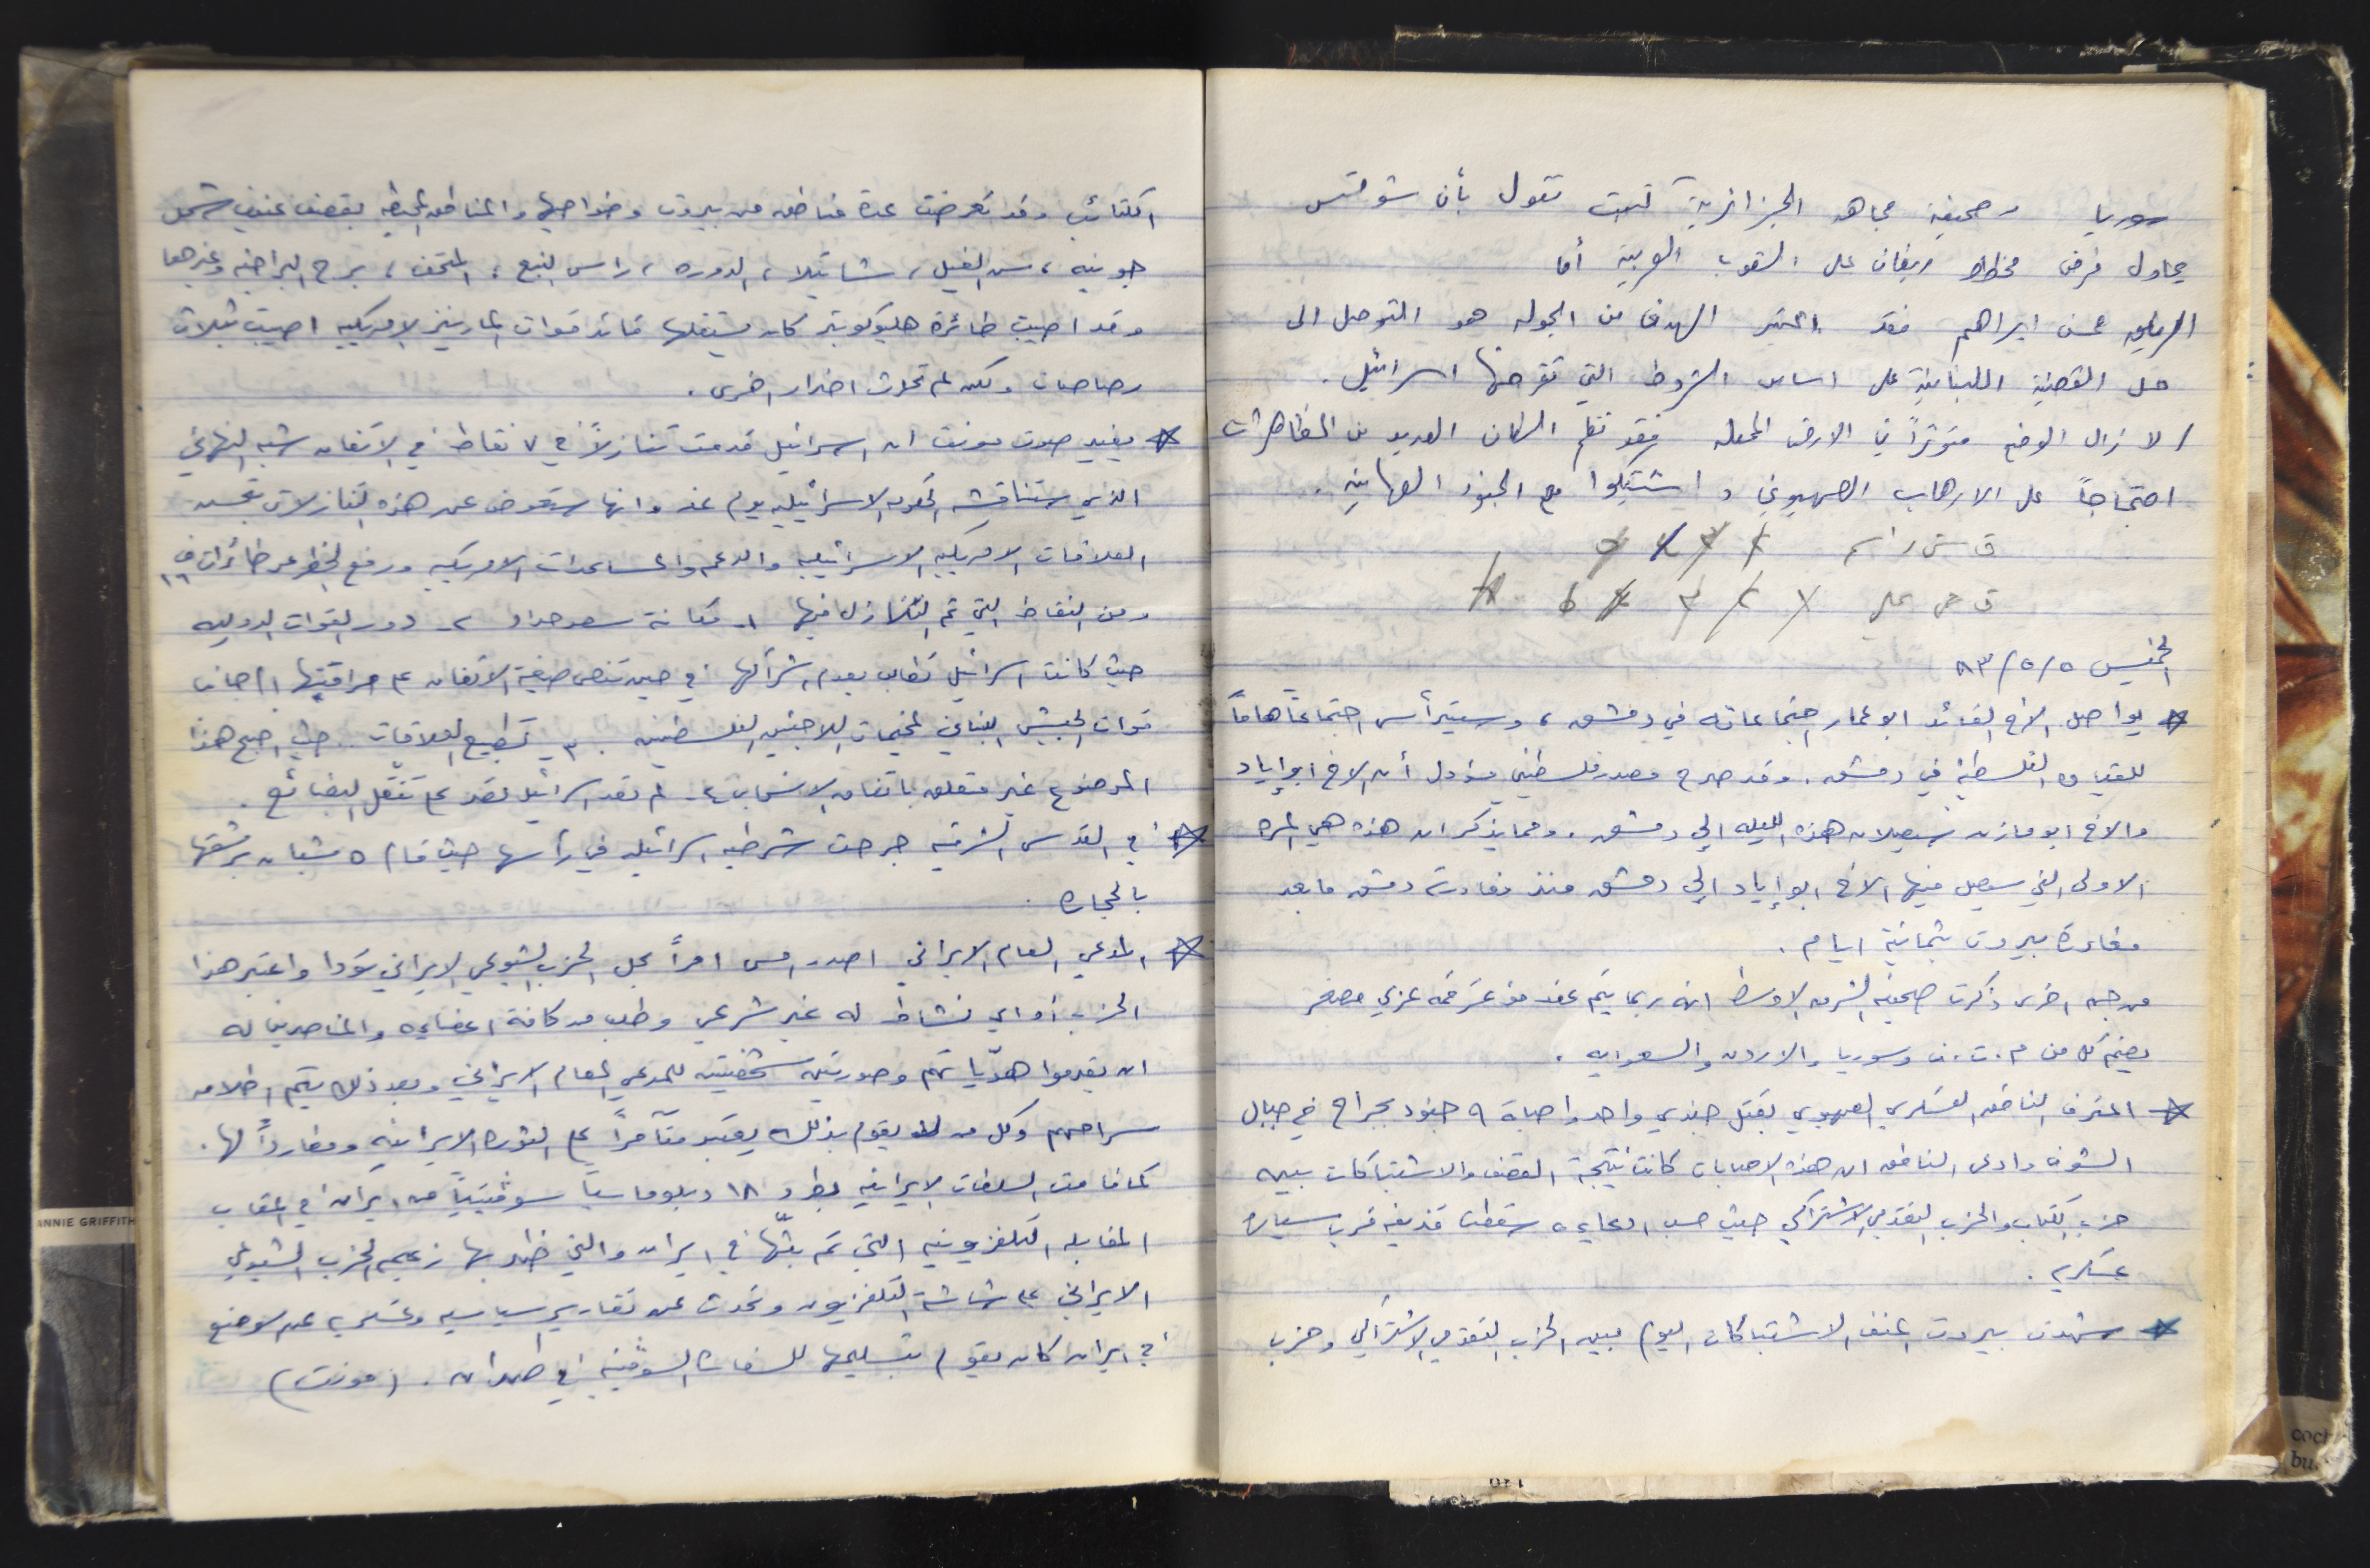 سوريا وصحيفة مجاهد الجزائرية كتبت تقول بأن شولتس
يحاول فرض مخطط ريغان على الشعوب العربية أما
الرفيق محسن ابراهيم فقد اعتبر الهدف من الجولة هو التوصل الى
حل القضية اللبنانية على اساس الشروط التي تفرضها اسرائيل.
/ لا زال الوضع متوتراً في الارض المحتله فقد نظم السكان العديد من المظاهرات
احتجاجاً على الارهاب الصهيوني واشتبكوا مع الجنود الصهاينة.
الخميس ٥/٥/٨٣
يواصل الاخ القائد ابو عمار اجتماعاته في دمشق، وسيترأس اجتماعاً هاماً
للقيادة الفلسطينية في دمشق. وقد صرح مصدر فلسطيني مسؤول أن الاخ ابو إياد
والاخ ابو مازن سيصلان هذه الليله الى دمشق. ومما يذكر ان هذه هي المرة
الاولى التي سيصل فيها الاخ ابو إياد الى دمشق منذ مغادرته دمشق ما بعد
مغادرة بيروت بثمانية ايام.
من جهه اخرى ذكرت صحيفة الشرق الاوسط انه ربما يتم عقد مؤتمر قمه عربي مصغر
يضم كل من م.ت.ف وسوريا والاردن والسعوديه.
اعترف الناطق العسكري الصهيوني بمقتل جندي واحد واصابة ٩ جنود بجراح في جبال
الشوف وادعى الناطق ان هذه الاصابات كانت نتيجة القصف والاشتباكات بين
حزب الكتائب والحزب التقدمي الاشتراكي حيث حسب ادعاءه سقطت قذيفه قرب سياره
عسكريه.
شهدت بيروت اعنف الاشتباكات اليوم بين الحزب التقدمي الاشتراكي وحزب
الكتائب وقد تعرضت عدة مناطق من بيروت وضواحيها والمناطق المحيطه لقصف عنيف شمل
جونيه، سن الفيل، شاتيلا، الدوره، راس النبع، المتحف، برج البراجنه وغيرها
وقد اصيبت طائرة هليوكوبتر كان يستقلها قائد قوات المارينز الامريكيه اصيبت بثلاث
رصاصات ولكن لم تحدث اضرار اخرى.
يفيد صوت مونت ان اسرائيل قدمت تنازلاً في ٧ نقاط في الاتفاق شبه النهائي
الذي ستناقشه الحكومه الاسرائيليه يوم غد وانها ستعوض عن هذه التنازلات بتحسن
العلاقات الامريكيه الاسرائيليه والدعم والمساعدات الامريكيه ورفع الحظر عن طائرات ف ١٦
ومن النقاط التي تم التنازل فيها ١- مكانة سعد حداد ٢- دور القوات الدوليه
حيث كانت اسرائيل تطالب بعدم اشراكها في حين تنص صيغة الاتفاق على مراقبتها الى جانب
قوات الجيش اللبناني لمخيمات اللاجئين الفلسطينيين. ٣- تطبيع العلاقات.. حيث اصبح هذا
الموضوع غير متعلق باتفاق الانسحاب ٤- لم تعد اسرائيل تصر على تنقل البضائع.
في القدس الشرقيه جرحت شرطيه اسرائيليه في رأسها حيث قام ٥ شبان برشقها
بالحجاره.
المدعي العام الايراني اصدر امس امراً بحل الحزب الشيوعي الايراني تودا واعتبر هذا
الحزب او اي نشاط له غير شرعي وطلب من كافة اعضاءه والمناصرين له
ان يقدموا هويّاتهم وصورتين شخصيتين للمدعي العام الايراني وبعد ذلك يتم اطلاق
سراحهم وكل من لا يقوم بذلك يعتبر متآمراً على الثورة الايرانيه ومعادياً لها.
كما قامت السلطات الايرانيه بطرد ١٨ دبلوماسياً سوفيتياً من ايران في اعقاب
المقابله التلفزيونيه التي تم بثّها في ايران والتي ظهر بها زعيم الحزب الشيوعي
الايراني على شاشة التلفزيون وتحدث عن تقارير سياسيه وعسكريه عن الوضع
في ايران كان يقوم بتسليمها للسفارة السوفيتيه في طهران. (مونت)
ANNIE GRIFFITH